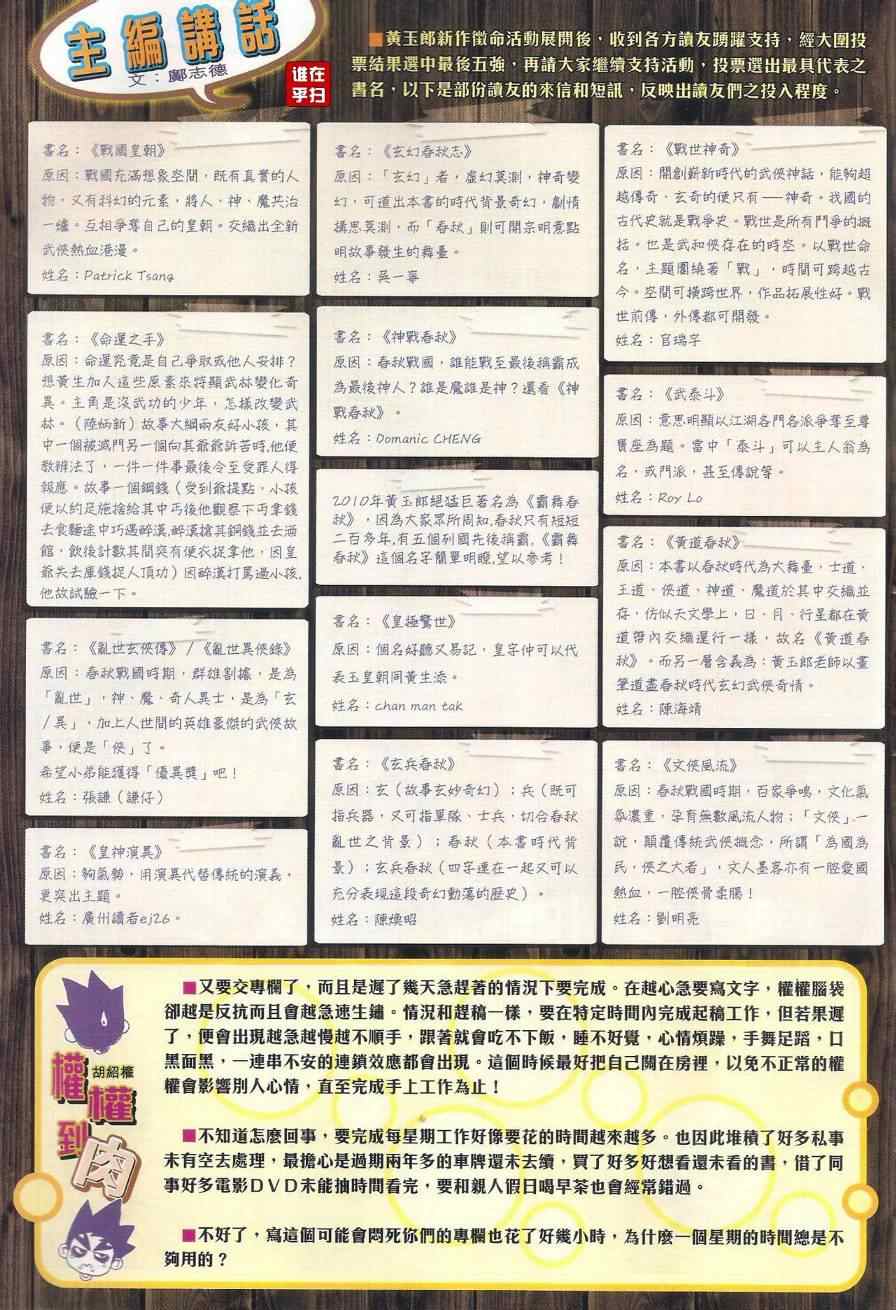 主編講話
文：鄺志德
誰在
乎扫
■黃玉郎新作徵命活動展開後，收到各方讀友踴躍支持，經大圍投
票結果選中最後五強，再請大家繼續支持活動，投票選出最具代表之
書名，以下是部份讀友的來信和短訊，反映出讀友們之投入程度。
書名：《戰國皇朝》
原因：戰國充滿想象空間，既有真實的人
物。又有科幻的元素，將人、神、魔共治
一爐。互相爭奪自己的皇朝。交織出全新
武俠熱血港漫。
姓名：Patrick Tsang
書名：《命運之手》
原因：命運究竟是自己爭取或他人安排？
想黃生加入這些原素來將顯武林變化奇
異。主角是沒武功的少年，怎樣改變武
林。（陸炳新）故事大綱兩友好小孩，其
中一個被滅門另一個向其爺爺訴苦時,他便
教辦法了，一件一件事最後令至受罪人得
報應。故事一個銅錢（受到爺提點，小孩
便以約足施捨給其中丐後他觀察下丐拿錢
去食麵途中巧遇醉漢,醉漢搶其銅錢並去酒
館，飲後計數其間突有便衣捉拿他，因皇
爺失去庫錢捉人頂功）因醉漢打罵過小孩,
他故試驗一下。
書名：《亂世玄俠傳》/《亂世異俠錄》
原因：春秋戰國時期，群雄割據，是為
「亂世」，神、魔、奇人異士，是為「玄
/異」，加上人世間的英雄豪傑的武俠故
事，便是「俠」了。
希望小弟能獲得「優異獎」吧！
姓名：張謙（謙仔）
書名：《皇神演異》
原因：夠氣勢，用演異代替傳統的演義，
更突出主題。
姓名：廣州讀者ej26。
書名：《玄幻春秋志》
原因：「玄幻」者，虛幻莫測，神奇變
幻，可道出本書的時代背景奇幻，劇情
構思莫測，而「春秋」則可開宗明意點
明故事發生的舞臺。
姓名：吳一寧
書名：《神戰春秋》
原因：春秋戰國，誰能戰至最後稱霸成
為最後神人？誰是魔誰是神？還看《神
戰春秋》。
姓名：Domanic CHENG
2010年黃玉郎絕猛巨著名為《霸舞春
秋》，因為大家眾所周知,春秋只有短短
二百多年,有五個列國先後稱霸,《霸舞
春秋》這個名字簡單明瞭,望以參考！
書名：《皇極驚世》
原因：個名好聽又易記，皇字仲可以代
表玉皇朝同黃生添。
姓名：chan man tak
書名：《玄兵春秋》
原因：玄（故事玄妙奇幻）；兵（既可
指兵器，又可指軍隊、士兵，切合春秋
亂世之背景）；春秋（本書時代背
景）；玄兵春秋（四字連在一起又可以
充分表現這段奇幻動蕩的歷史）。
姓名：陳煐昭
書名：《戰世神奇》
原因：開創嶄新時代的武俠神話，能夠超
越傳奇、玄奇的便只有——神奇。我國的
古代史就是戰爭史。戰世是所有鬥爭的概
括。也是武和俠存在的時空。以戰世命
名，主題圍繞著「戰」，時間可跨越古
今。空間可橫跨世界，作品拓展性好。戰
世前傳，外傳都可開發。
姓名：官瑞宇
書名：《武泰斗》
原因：意思明顯以江湖各門各派爭奪至尊
寶座為題。當中「泰斗」可以主人翁為
名，或門派，甚至傳說等。
姓名：Roy Lo
書名：《黃道春秋》
原因：本書以春秋時代為大舞臺，士道、
王道、俠道、神道、魔道於其中交織並
存，仿似天文學上，日、月、行星都在黃
道帶內交織運行一樣，故名《黃道春
秋》。而另一層含義為：黃玉郎老師以畫
筆道盡春秋時代玄幻武俠奇情。
姓名：陳海靖
書名：《文俠風流》
原因：春秋戰國時期，百家爭鳴，文化氣
氛濃重，孕育無數風流人物；「文俠」一
說，顛覆傳統武俠概念，所謂「為國為
民，俠之大者」，文人墨客亦有一腔愛國
熱血，一腔俠骨柔腸！
姓名：劉明亮
權權到肉
胡紹權
■又要交專欄了，而且是遲了幾天急趕著的情況下要完成。在越心急要寫文字，權權腦袋
卻越是反抗而且會越急速生鏽。情況和趕稿一樣，要在特定時間內完成起稿工作，但若果遲
了，便會出現越急越慢越不順手，跟著就會吃不下飯，睡不好覺，心情煩躁，手舞足蹈，口
黑面黑，一連串不安的連鎖效應都會出現。這個時候最好把自己關在房裡，以免不正常的權
權會影響別人心情，直至完成手上工作為止！
■不知道怎麼回事，要完成每星期工作好像要花的時間越來越多。也因此堆積了好多私事
未有空去處理，最擔心是過期兩年多的車牌還未去續，買了好多好想看還未看的書，借了同
事好多電影DVD未能抽時間看完，要和親人假日喝早茶也會經常錯過。
■不好了，寫這個可能會悶死你們的專欄也花了好幾小時，為什麼一個星期的時間總是不
夠用的？